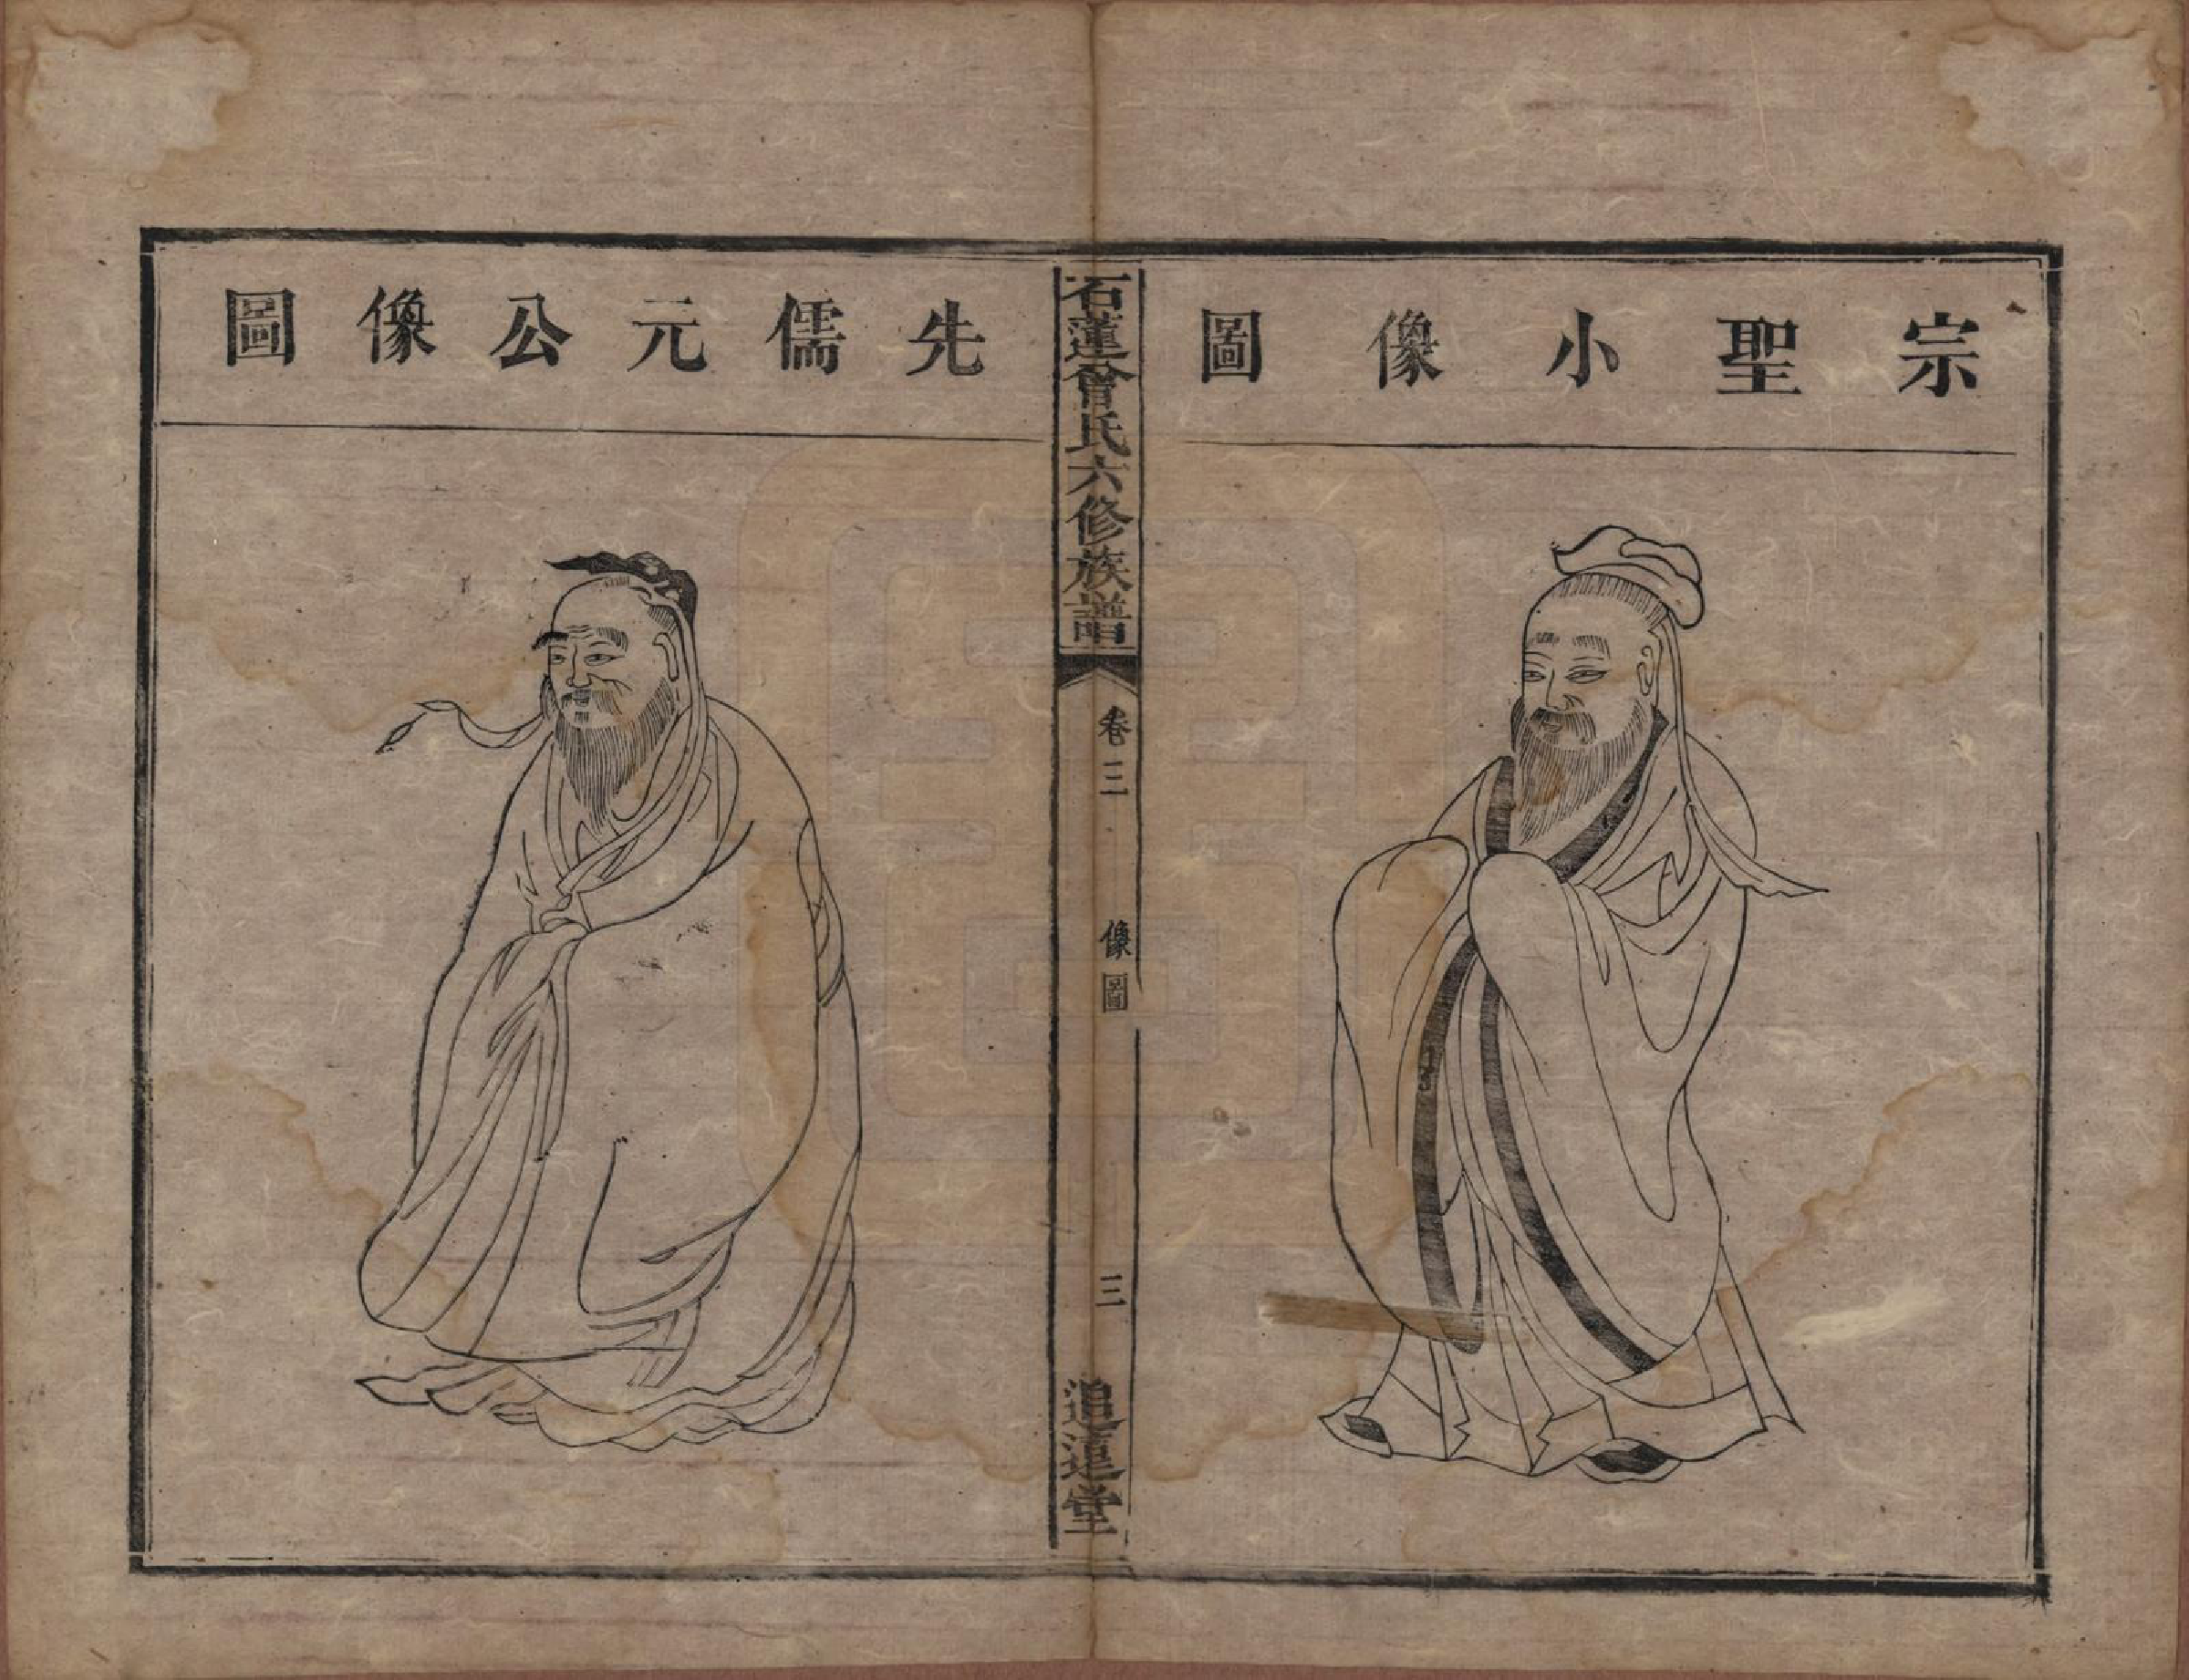 宗聖小像圖
石蓮曾氏六修族譜
卷三
像圖
三
追遠堂
先儒元公像圖